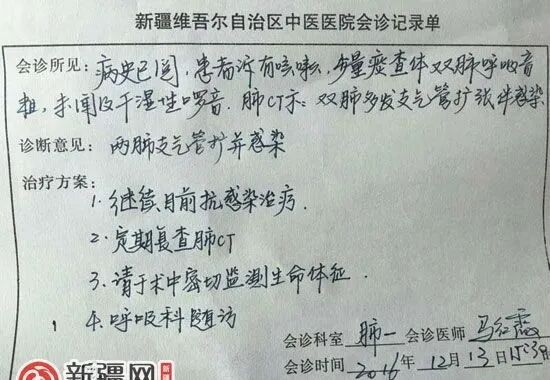 新疆维吾尔自治区中医医院会诊记录单
会诊所见：病史已阅，患者诉有咳嗽，少量痰查体双肺呼吸音
粗，未闻及干湿性啰音．肺CT示：双肺多发支气管扩张伴感染
诊断意见：两肺支气管扩并感染
治疗方案：
1．继续目前抗感染治疗．
2．定期复查肺CT
3．请于术中密切监测生命体征．
4．呼吸科随访
会诊科室 肺一 会诊医师 马红霞
会诊时间 2016年 12月 13日
新疆网